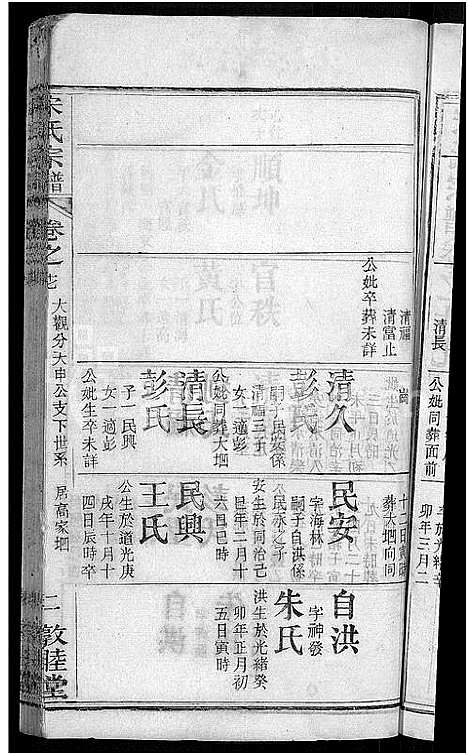 卯年三月二
公妣同葬面前
清長
十二日寅時
葬大垇向同
清福
清富止
公妣卒葬未詳
清久
彭氏
嗣子民安係
清福三子
女一適彭
公妣同葬大垇
清長
彭氏
子一民興
女一適彭
公妣生卒未詳
民安
字海林
嗣子自洪係
公民添之子
安生於同治己
巳年二月十
六日巳時
民興
王氏
公生於道光庚
戌年十月十
四日辰時卒
自洪
字神發
朱氏
洪生於光緒癸
卯年正月初
五日寅時
宋氏宗譜
卷之七
大觀分大申公支下世系
居高家垇
二
敦睦堂